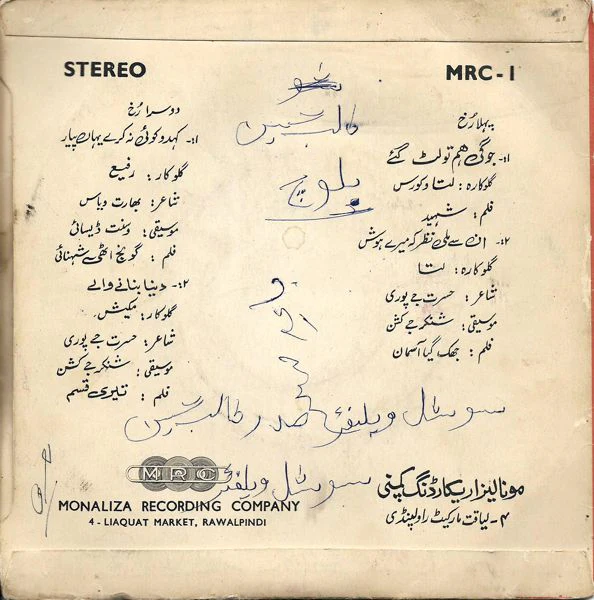 STEREO
MRC-1
پہلا رُخ
۱- جوگی ہم تو لٹ گئے
گلوکارہ: لتا و کورس
فلم: شہید
۲- ان سے ملی نظر کہ میرے ہوش
گلوکارہ: لتا
شاعر: حسرت جے پوری
موسیقی: شنکر جے کشن
فلم: جھک گیا آسمان
دوسرا رُخ
۱- کہدو کوئی نہ کرے یہاں پیار
گلوکار: رفیع
شاعر: بھارت ویاس
موسیقی: وسنت ڈیسائی
فلم: گونج اٹھی شہنائی
۲- دنیا بنانے والے
گلوکار: مکیش
شاعر: حسرت جے پوری
موسیقی: شنکر جے کشن
فلم: تیری قسم
طالب حسین
بلوچ
سوشل ویلفئر صدر طالب حسین
سوشل ویلفئر
MRC
MONALIZA RECORDING COMPANY
4 - LIAQUAT MARKET, RAWALPINDI
مونالیزا ریکارڈنگ کمپنی
۴- لیاقت مارکیٹ راولپنڈی